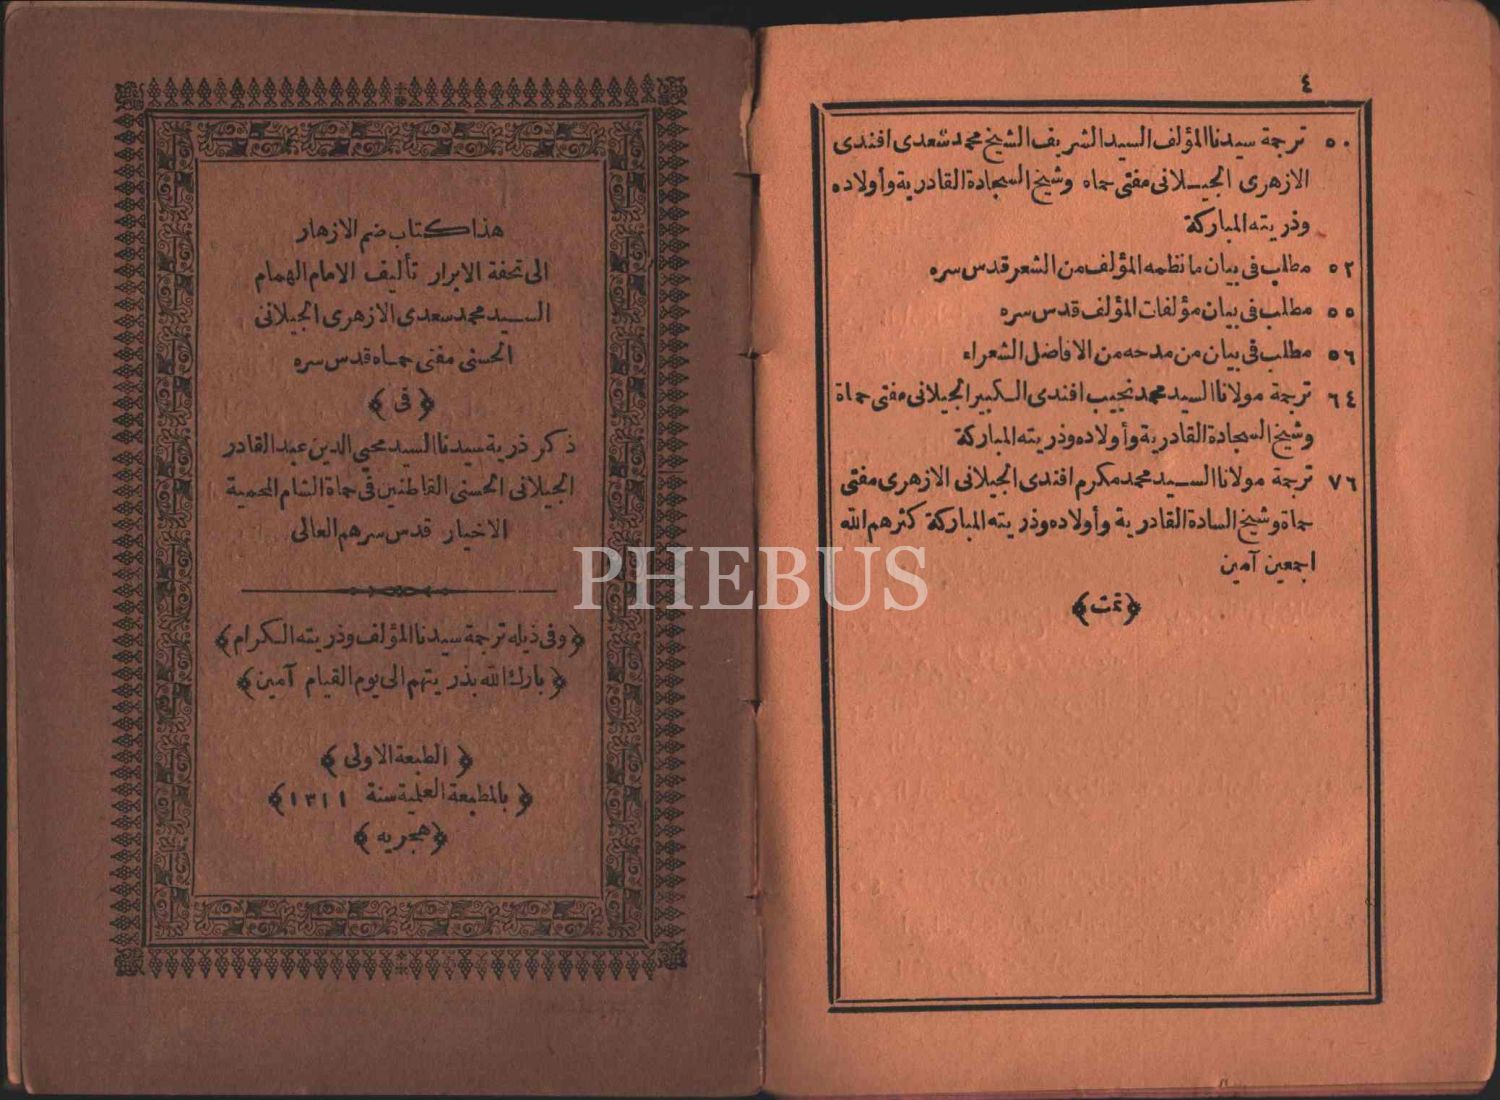 ٤
٥٠ ترجمة سيدنا المؤلف السيد الشريف الشيخ محمد سعدى افندى
الازهرى الجيلانى مفتى حماه وشيخ السجادة القادرية وأولاده
وذريته المباركة
٥٢ مطلب فى بيان ما نظمه المؤلف من الشعر قدس سره
٥٥ مطلب فى بيان مؤلفات المؤلف قدس سره
٥٦ مطلب فى بيان من مدحه من الافاضل الشعراء
٦٤ ترجمة مولانا السيد محمد نجيب افندى الكبير الجيلانى مفتى حماة
وشيخ السجادة القادرية وأولاده وذريته المباركة
٧٦ ترجمة مولانا السيد محمد مكرم افندى الجيلانى الازهرى مفتى
حماة وشيخ السادة القادرية وأولاده وذريته المباركة كثرهم الله
اجمعين آمين
﴿تمت﴾
هذا كتاب ضم الازهار
الى تحفة الابرار تأليف الامام الهمام
السيد محمد سعدى الازهرى الجيلانى
الحسنى مفتى حماه قدس سره
﴿فى﴾
ذكر ذرية سيدنا السيد محيى الدين عبد القادر
الجيلانى الحسنى القاطنين فى حماة الشام المحمية
الاخيار قدس سرهم العالى
﴿وفى ذيله ترجمة سيدنا المؤلف وذريته الكرام﴾
﴿بارك الله بذريتهم الى يوم القيام آمين﴾
﴿الطبعة الاولى﴾
﴿بالمطبعة العلمية سنة ١٣١١﴾
﴿هجريه﴾
PHEBUS